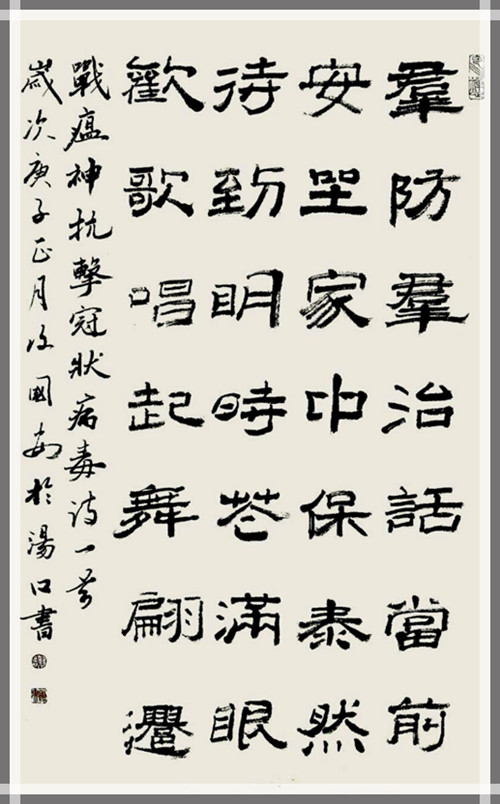 羣防羣治話當前
安坐家中保泰然
待到明時花滿眼
歡歌唱起舞翩遷
戰瘟神抗擊冠狀病毒诗一首
歲次庚子正月國於湯口書